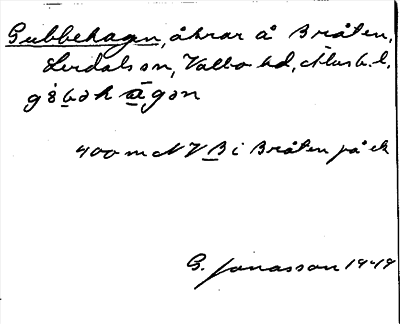 Gubbehagen, åkrar å Bråten,
Lerdals sn, Valbo hd, Älvsb. l.
gȯ́bəhāgən
400 m NV B i Bråten på ek
G. Jonasson 1949